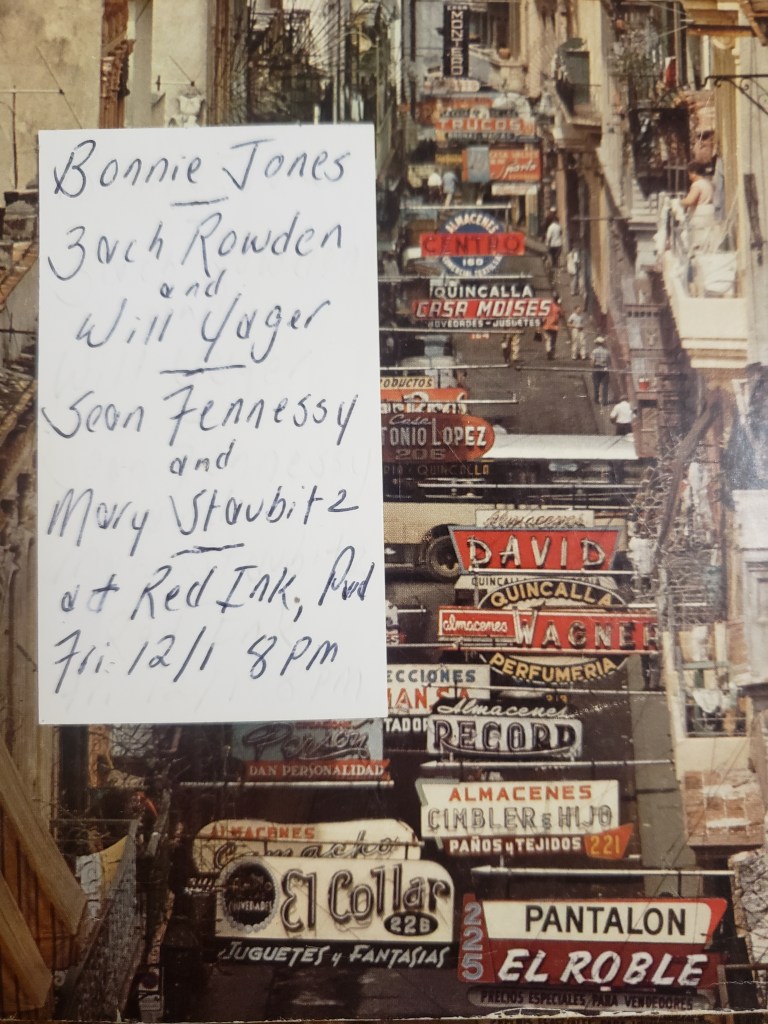 Bonnie Jones
Zach Rowden
and
Will Yager
Sean Fennessy
and
Mary Staubitz
at Red Ink, Pvd
Fri 12/1 8 PM
MONTERO
TRUCOS
ALMACENES
CENTRO
QUINCALLA
CASA MOISES
NOVEDADES - JUGUETES
ODUCTOS
Casa
TONIO LOPEZ
206
QUINCALLA
Almacenes
DAVID
QUINCALLA
QUINCALLA
almacenes WAGNER
PERFUMERIA
ECCIONES
TADOR
Almacenes
RECORD
DAN PERSONALIDAD
ALMACENES
CIMBLER e HIJO
PAÑOS y TEJIDOS 221
ALMACENES
Camacho
El Collar
NOVEDADES
226
JUGUETES y FANTASIAS
225
PANTALON
EL ROBLE
PRECIOS ESPECIALES PARA VENDEDORES